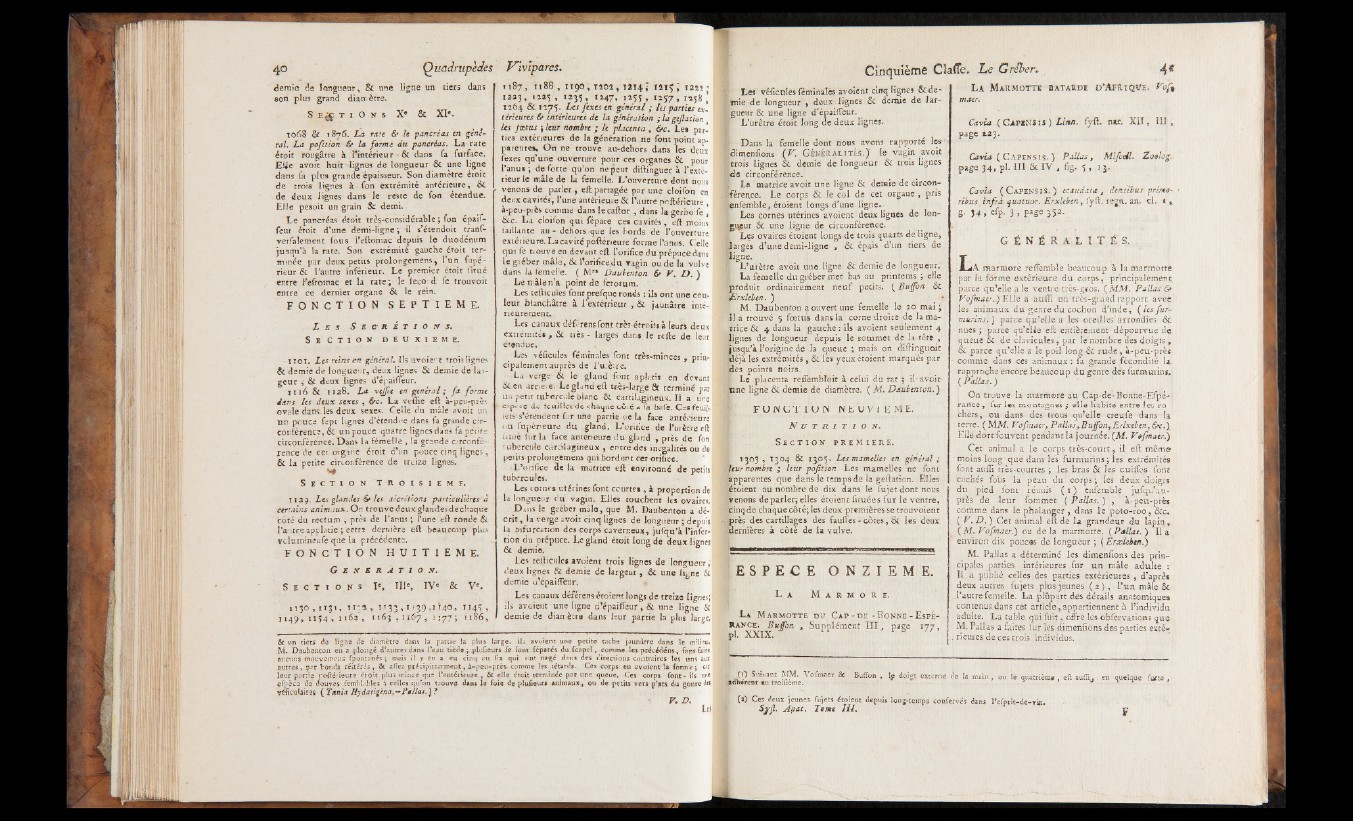 40 Quadrupèdes Vivipares.
demie de longueur, & une ligne un tiers dans
son plus grand diamètre.
SECTIONS Xe & XIe.
1068 & 1876. La rate & le pancréas en géné-
ral. La position & la forme du pancréas. La rate
étoit rougâtre à l'intérieur & dans sa surface.
Elle avoit huit lignes de longueur & une ligne
dans sa plus grande épaisseur. Son diamètre étoit
de trois lignes à son extrémité antérieure, &
de deux lignes dans le reste de son étendue.
Elle pesoit un grain & demi.
Le pancréas étoit très-considérable ; son épais-
seur étoit d'une demi-ligne ; il s'étendoit tranf-
versalement sous l'estomac depuis le duodénum
jusqu'à la rate. Son extrémité gauche étoit ter-
minée par deux petits prolongemens, l'un supé-
rieur & l'autre inférieur. Le premier étoit situé
entre l'estomac et la rate ; le second se trouvoit
entre ce dernier organe & le rein.
FONCTION SEPTIEME.
LES SECRÉTIONS.
SECTION DEUXIEME.
1101. Les reins en général. Ils avoient trois lignes
& demie de longueur, deux lignes & demie de lar-
geur, & deux lignes d'épaisseur.
1116 & 1128. La vessie en général ; sa forme
dans les deux sexes, &c. La vessie est à-peu-près
ovale dans les deux sexes. Celle du mâle avoit un
un pouce sept lignes d'étendue dans sa grande cir-
conférence, & un pouce quatre lignes dans sa petite
circonférence. Dans la femelle, la grande circonfé-
rence de cet organe étoit d'un pouce cinq lignes,
& la petite circonférence de treize lignes.
SECTION TROISIEME.
1129. Les glandes & les sécrétions particulières à
certains animaux. On trouve deux glandes de chaque
côté du rectum, près de l'anus ; l'une est ronde &
l'autre applatie ; cette dernière est beaucoup plus
volumineuse que la précédente.
FONCTION HUITIEME.
GENERATION.
SECTIONS Ie, IIIe, IVe & Ve.
1130, 1131, 1132, 1133, 1139, 1140, 1145,
1149, 1154, 1162, 1163, 1167, 1177 ; 1186,
1187, 1188, 1190, 1202, 1214, 1215, 1221 ;
1223, 1225, 1235, 1247, 1255, 1257, 1258,
1264 & 1275. Les sexes en général ; les parties ex-
térieures & intérieures de la génération ; la gestation,
les fœtus ; leur nombre ; le placenta, &c. Les par-
ties extérieures de la génération ne sont point ap-
parentes. On ne trouve au-dehors dans les deux
sexes qu'une ouverture pour ces organes & pour
l'anus ; de sorte qu'on ne peut distinguer à l'exté-
rieur le mâle de la femelle. L'ouverture dont nous
venons de parler, est partagée par une cloison en
deux cavités, l'une antérieure & l'autre postérieure,
à-peu-près comme dans le castor, dans la gerboise,
&c. La cloison qui sépare ces cavités, est moins
saillante au-dehors que les bords de l'ouverture
extérieure. La cavité postérieure forme l'anus. Celle
qui se trouve en devant est l'orifice du prépuce dans
le gréber mâle, & l'orifice du vagin ou de la vulve
dans la femelle. (Mrs Daubenton & V. D.)
Le mâle n'a point de scrotum.
Les testicules sont presque ronds : ils ont une cou-
leur blanchâtre à l'extérieur, & jaunâtre inté-
rieurement.
Les canaux déférens sont très étroits à leurs deux
extrémités, & très-larges dans le reste de leur
étendue.
Les vésicules séminales sont très-minces, prin-
cipalement auprès de l'urètre.
La verge & le gland sont aplatis en devant
& en arrière. Le gland est très-large & terminé par
un petit tubercule blanc & cartilagineux. Il a une
espèce de feuillet de chaque côté à sa base. Ces feuil-
lets s'étendent sur une partie de la face antérieure
ou supérieure du gland. L'orifice de l'urètre est
situé sur la face antérieure du gland, près de son
tubercule cartilagineux, entre des inégalités ou de
petits prolongemens qui bordent cet orifice.
L'orifice de la matrice est environné de petits
tubercules.
Les cornes utérines sont courtes, à proportion de
la longueur du vagin. Elles touchent les ovaires.
Dans le gréber mâle, que M. Daubenton a dé-
crit, la verge avoit cinq lignes de longueur ; depuis
la bifurcation des corps caverneux, jusqu'à l'inser-
tion du prépuce. Le gland étoit long de deux lignes
& demie.
Les testicules avoient trois lignes de longueur,
deux lignes & demie de largeur, & une ligne &
demie d'épaisseur.
Les canaux déférens étoient longs de treize lignes ;
ils avoient une ligne d'épaisseur, & une ligne &
demie de diamètre dans leur partie la plus large.
& un tiers de ligne de diamètre dans la partie la plus large. Ils avoient une petite tache jaunâtre dans le milieu.
M. Daubenton en a plongé d'autres dans l'eau tiède ; plusieurs se sont séparés du scapel, comme les précédens, sans faire
aucuns mouvemens spontanés ; mais il y en a eu cinq ou six qui ont nagé dans des directions contraires les uns aux
autres, par bonds réitérés, & assez précipitamment, à-peu-près comme les têtards. Ces corps en avoient la forme ; car
leur partie postérieure étoit plus mince que l'antérieure, & elle étoit terminée par une queue. Ces corps sont-ils une
espèce de douves semblables à celles qu'on trouve dans le foie de plusieurs animaux, ou de petits vers plats du genre des
vésiculaires (Tænia Hydatigena.—Pallas.) ?
V. D.
Les
Cinquième Classe. Le Gréber. 41
Les vésicules séminales avoient cinq lignes & de-
mie de longueur, deux lignes & demie de lar-
gueur & une ligne d'épaisseur.
L'urètre étoit long de deux lignes.
Dans la femelle dont nous avons rapporté les
dimensions (V. GÉNÉRALITÉS.) le vagin avoit
trois lignes & demie de longueur & trois lignes
de circonférence.
La matrice avoit une ligne & demie de circon-
férence. Le corps & le col de cet organe, pris
ensemble, étoient longs d'une ligne.
Les cornes utérines avoient deux lignes de lon-
gueur & une ligne de circonférence.
Les ovaires étoient longs de trois quarts de ligne,
larges d'une demi-ligne, & épais d'un tiers de
ligne.
L'urètre avoit une ligne & demie de longueur.
La femelle du gréber met bas au printems ; elle
produit ordinairement neuf petits. (Buffon &
Erxleben.)
M. Daubenton a ouvert une femelle le 20 mai ;
il a trouvé 5 fœtus dans la corne droite de la ma-
trice & 4 dans la gauche : ils avoient seulement 4
lignes de longueur depuis le sommet de la tête,
jusqu'à l'origine de la queue ; mais on distinguoit
déjà les extrémités, & les yeux étoient marqués par
des points noirs.
Le placenta ressembloit à celui du rat ; il avoit
une ligne & demie de diamètre. (M. Daubenton.)
FONCTION NEUVIEME.
NUTRITION.
SECTION PREMIERE.
1303, 1304 & 1305. Les mamelles en général ;
leur nombre ; leur position. Les mamelles ne sont
apparentes que dans le temps de la gestation. Elles
étoient au nombre de dix dans le sujet dont nous
venons de parler ; elles étoient situées sur le ventre,
cinq de chaque côté ; les deux premières se trouvoient
près des cartillages des fausses-côtes, & les deux
dernières à côté de la vulve.
ESPECE ONZIEME.
LA MARMORE.
LA MARMOTTE DU CAP-DE-BONNE-ESPÉ-
RANCE. Buffon, Supplément III, page 177,
pl. XXIX.
LA MARMOTTE BATARDE D'AFRIQUE. Vos-
maer.
Cavia (CAPENSIS) Linn. syst. nat. XII, III,
page 223.
Cavia (CAPENSIS.) Pallas, Miscell. Zoolog.
page 34, pl. III & IV, fig. 5, 13.
Cavia (CAPENSIS.) ecaudata, dentibus primo-
ribus infrà quatuor. Erxleben, syst. regn. an. cl. 1,
g. 34, esp. 3, page 352.
GÉNÉRALITÉS.
LA marmore ressemble beaucoup à la marmotte
par la forme extérieure du corps, principalement
parce qu'elle a le ventre très-gros. (MM. Pallas &
Vosmaer.) Elle a aussi un très-grand rapport avec
les animaux du genre du cochon d'inde, (les sur-
murins,) parce qu'elle a les oreilles arrondies &
nues ; parce qu'elle est entièrement dépourvue de
queue & de clavicules, par le nombre des doigts,
& parce qu'elle a le poil long & rude, à-peu-près
comme dans ces animaux : sa grande fécondité la
rapproche encore beaucoup du genre des surmurins.
(Pallas.)
On trouve la marmore au Cap-de-Bonne-Espé-
rance, sur les montagnes ; elle habite entre les ro-
chers, ou dans des trous qu'elle creuse dans la
terre. (MM. Vosmaer, Pallas, Buffon, Erxleben, &c.)
Elle dort souvent pendant la journée. (M. Vosmaer.)
Cet animal a le corps très-court, il est même
moins long que dans les surmurins ; les extrémités
sont aussi très-courtes ; les bras & les cuisses sont
cachés sous la peau du corps ; les deux doigts
du pied sont réunis (1) ensemble jusqu'au-
près de leur sommet (Pallas.), à peu-près
comme dans le phalanger, dans le poto-roo, &c.
(V. D.) Cet animal est de la grandeur du lapin,
(M. Vosmaer.) ou de la marmotte. (Pallas.) Il a
environ dix pouces de longueur ; (Erxleben.)
M. Pallas a déterminé les dimensions des prin-
cipales parties intérieures sur un mâle adulte :
Il a publié celles des parties extérieures, d'après
deux autres sujets plus jeunes (2), l'un mâle &
l'autre femelle. La plûpart des détails anatomiques
contenus dans cet article, appartiennent à l'individu
adulte. La table qui suit, offre les observations que
M. Pallas a faites sur les dimensions des parties exté-
rieures de ces trois individus.
(1) Suivant MM. Vosmaer & Buffon, le doigt externe de la main, ou le quatrième, est aussi, en quelque sorte,
adhérent au troisième.
(2) Ces deux jeunes sujets étoient depuis long-temps conservés dans l'esprit-de-vin.
Syst. Anat. Tome III. F